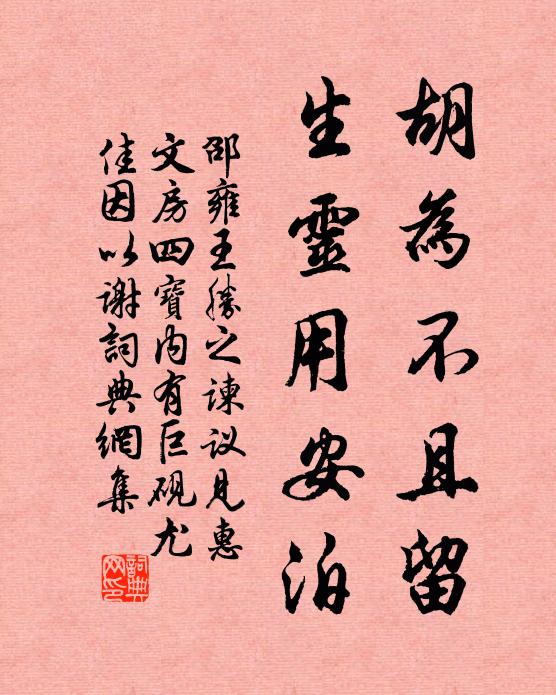 胡為不且留
生靈用安泊
邵雍王勝之諫议見惠
文房四寶内有巨砚尤
佳因以谢詞典網集
詞典
网印